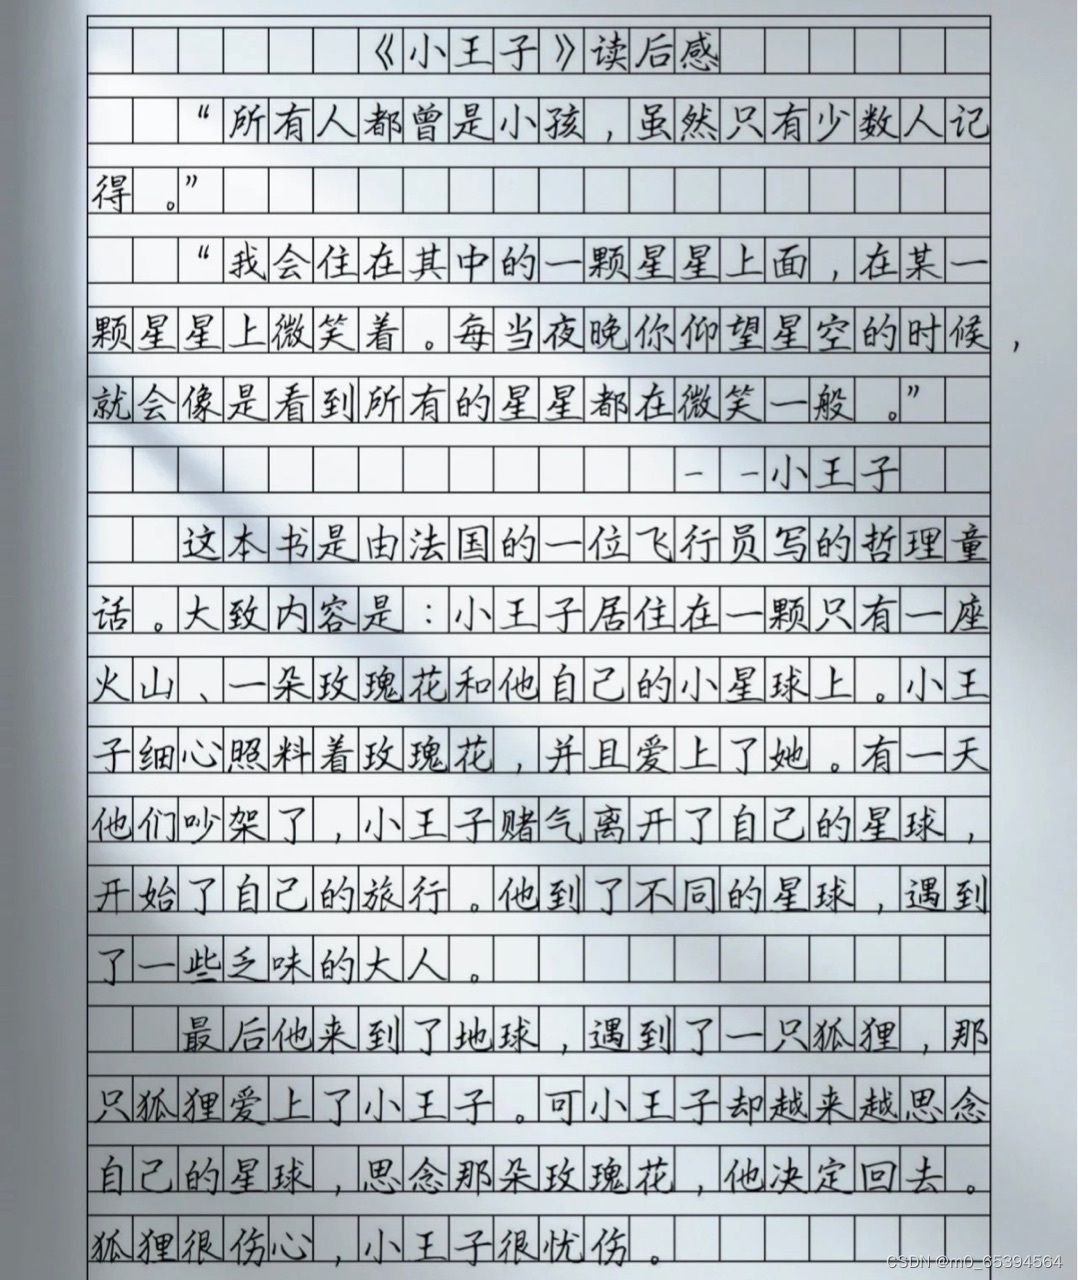 《小王子》读后感
“所有人都曾是小孩，虽然只有少数人记
得。”
“我会住在其中的一颗星星上面，在某一
颗星星上微笑着。每当夜晚你仰望星空的时候，
就会像是看到所有的星星都在微笑一般。”
--小王子
这本书是由法国的一位飞行员写的哲理童
话。大致内容是：小王子居住在一颗只有一座
火山、一朵玫瑰花和他自己的小星球上。小王
子细心照料着玫瑰花，并且爱上了她。有一天
他们吵架了，小王子赌气离开了自己的星球，
开始了自己的旅行。他到了不同的星球，遇到
了一些乏味的大人。
最后他来到了地球，遇到了一只狐狸，那
只狐狸爱上了小王子。可小王子却越来越思念
自己的星球，思念那朵玫瑰花，他决定回去。
狐狸很伤心，小王子很忧伤。
CSDN @m0_65394564